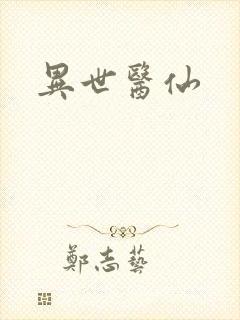 異世醫仙
鄭志藝